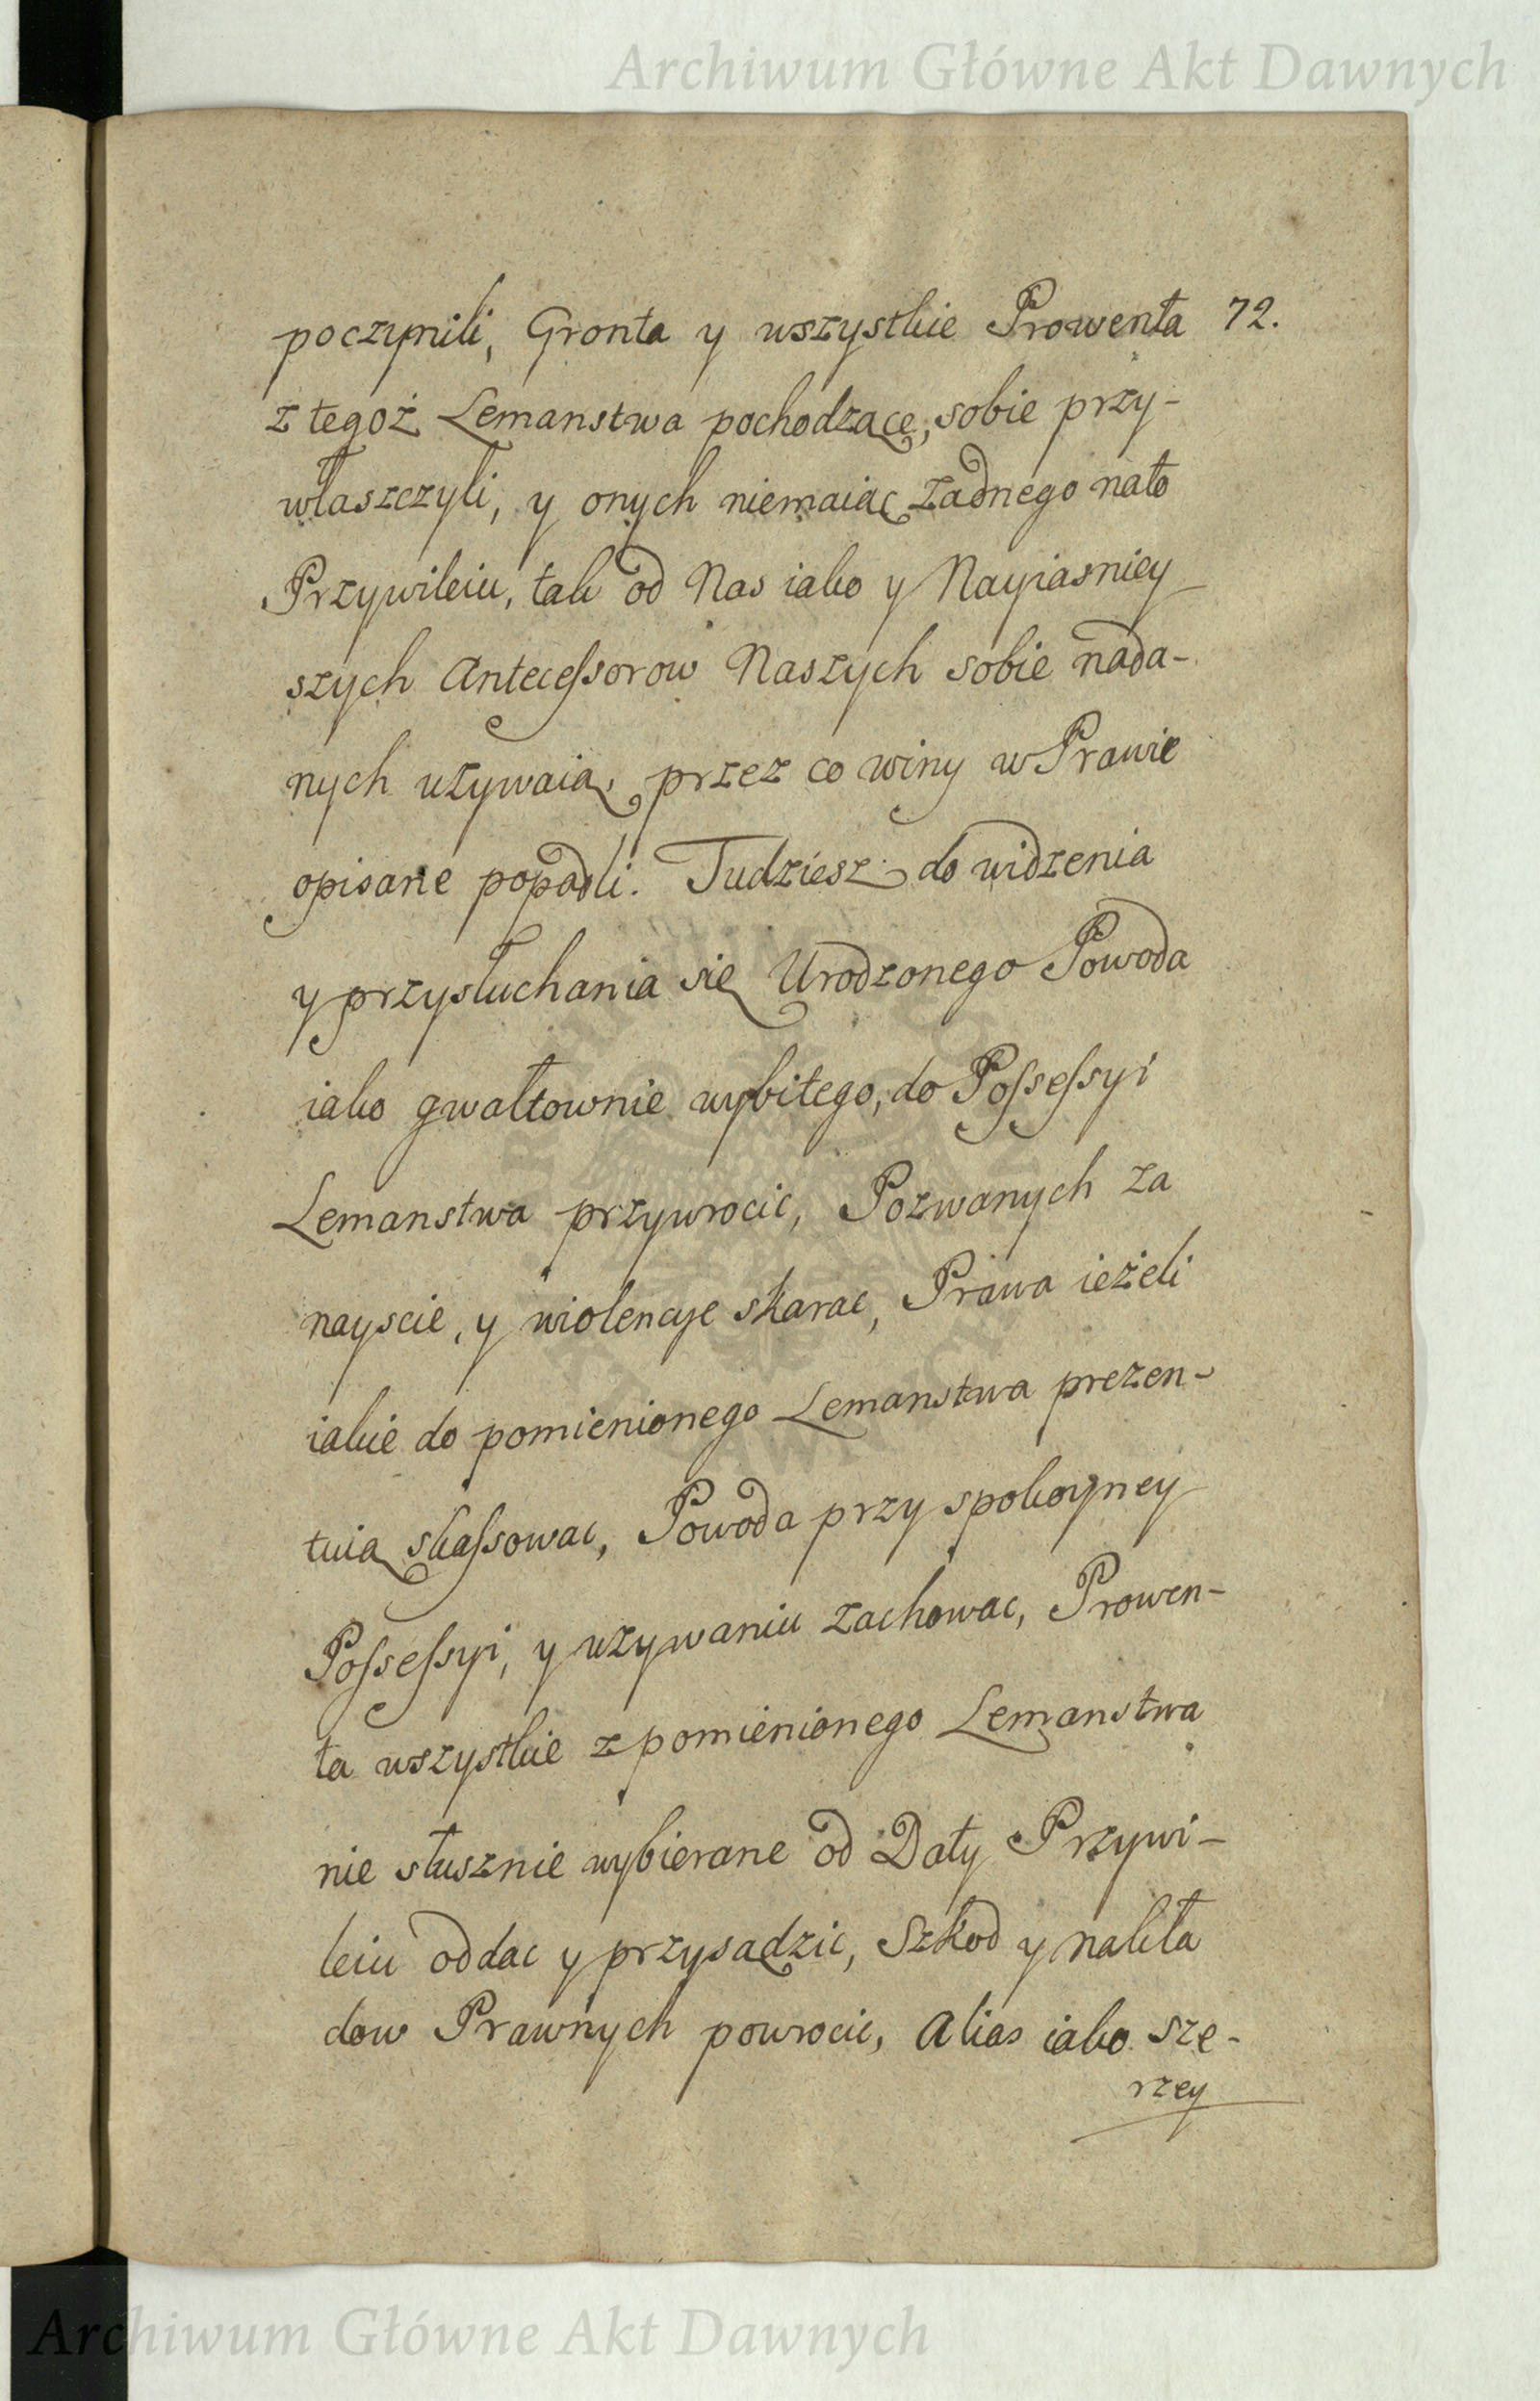 Archiwum Główne Akt Dawnych
72.
poczynili, Gronta y wszystkie Prowenta
z tegoż Lemanstwa pochodzące, sobie przy-
własczyli, y onych niemaiąc żadnego nato
Przywileiu, tak od Nas iako y Nayiasniey
szych Antecessorow Naszych sobie nada-
nych używaią, przez co winy w Prawie
opisane popadli. Tudziesz do widzenia
y przysłuchania się Urodzonego Powoda
iako gwałtownie wybitego, do Possessyi
Lemanstwa przywrocic, Pozwanych za
nayscie, y wiolencye skarac, Prawa ieżeli
iakie do pomienionego Lemanstwa prezen-
tuią skassowac, Powoda przy spokoyney
Possessyi, y uzywaniu zachowac, Prowen-
ta wszystkie z pomienionego Lemanstwa
nie słusznie wybierane od Daty Przywi-
leiu oddac y przysądzic, Szkod y nakła
dow Prawnych powrocic, Alias iako sze-
rzey
Archiwum Główne Akt Dawnych